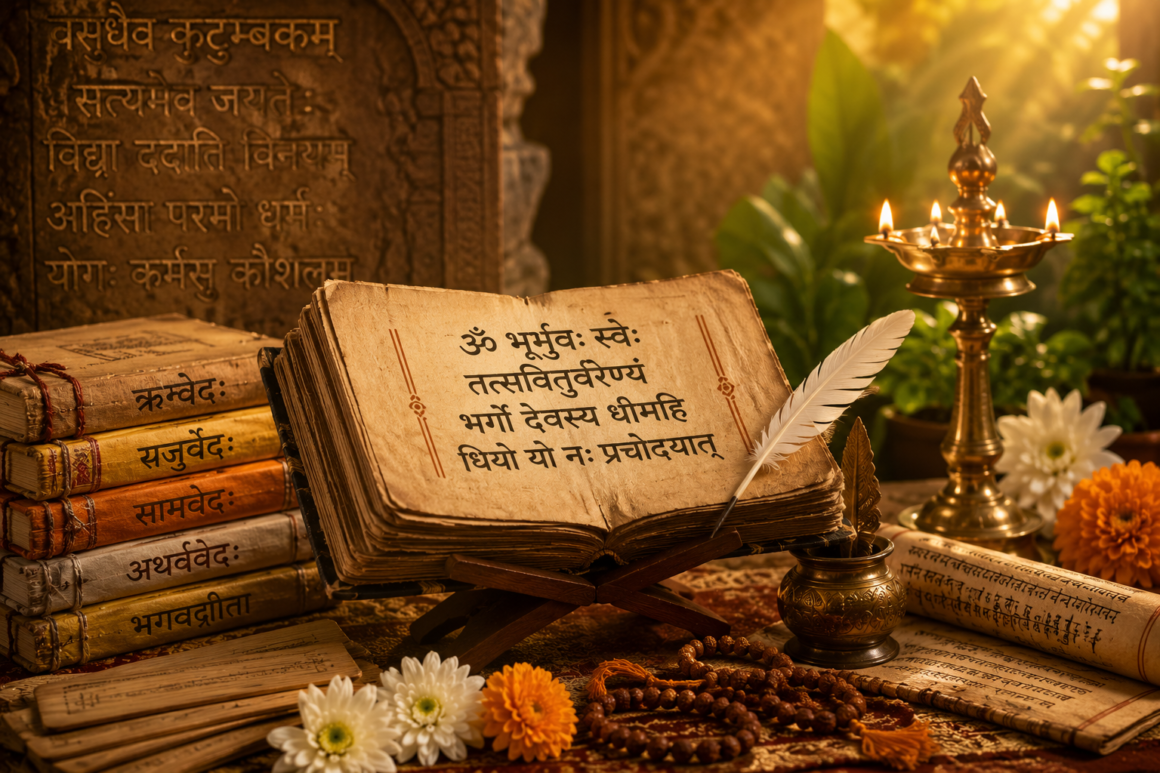 वसुधैव कुटुम्बकम्
सत्यमेव जयतेः
विद्या ददाति विनयम्
अहिंसा परमो धर्मः
योगः कर्मसु कौशलम्
ॐ भूर्मुवः स्वेः
तत्सवितुर्वरेण्यं
भर्गो देवस्य धीमहि
धियो यो नः प्रचोदयात्
ऋम्वेदः
सजुर्वेदः
सामवेदः
अथर्ववेदः
भगवद्गीता